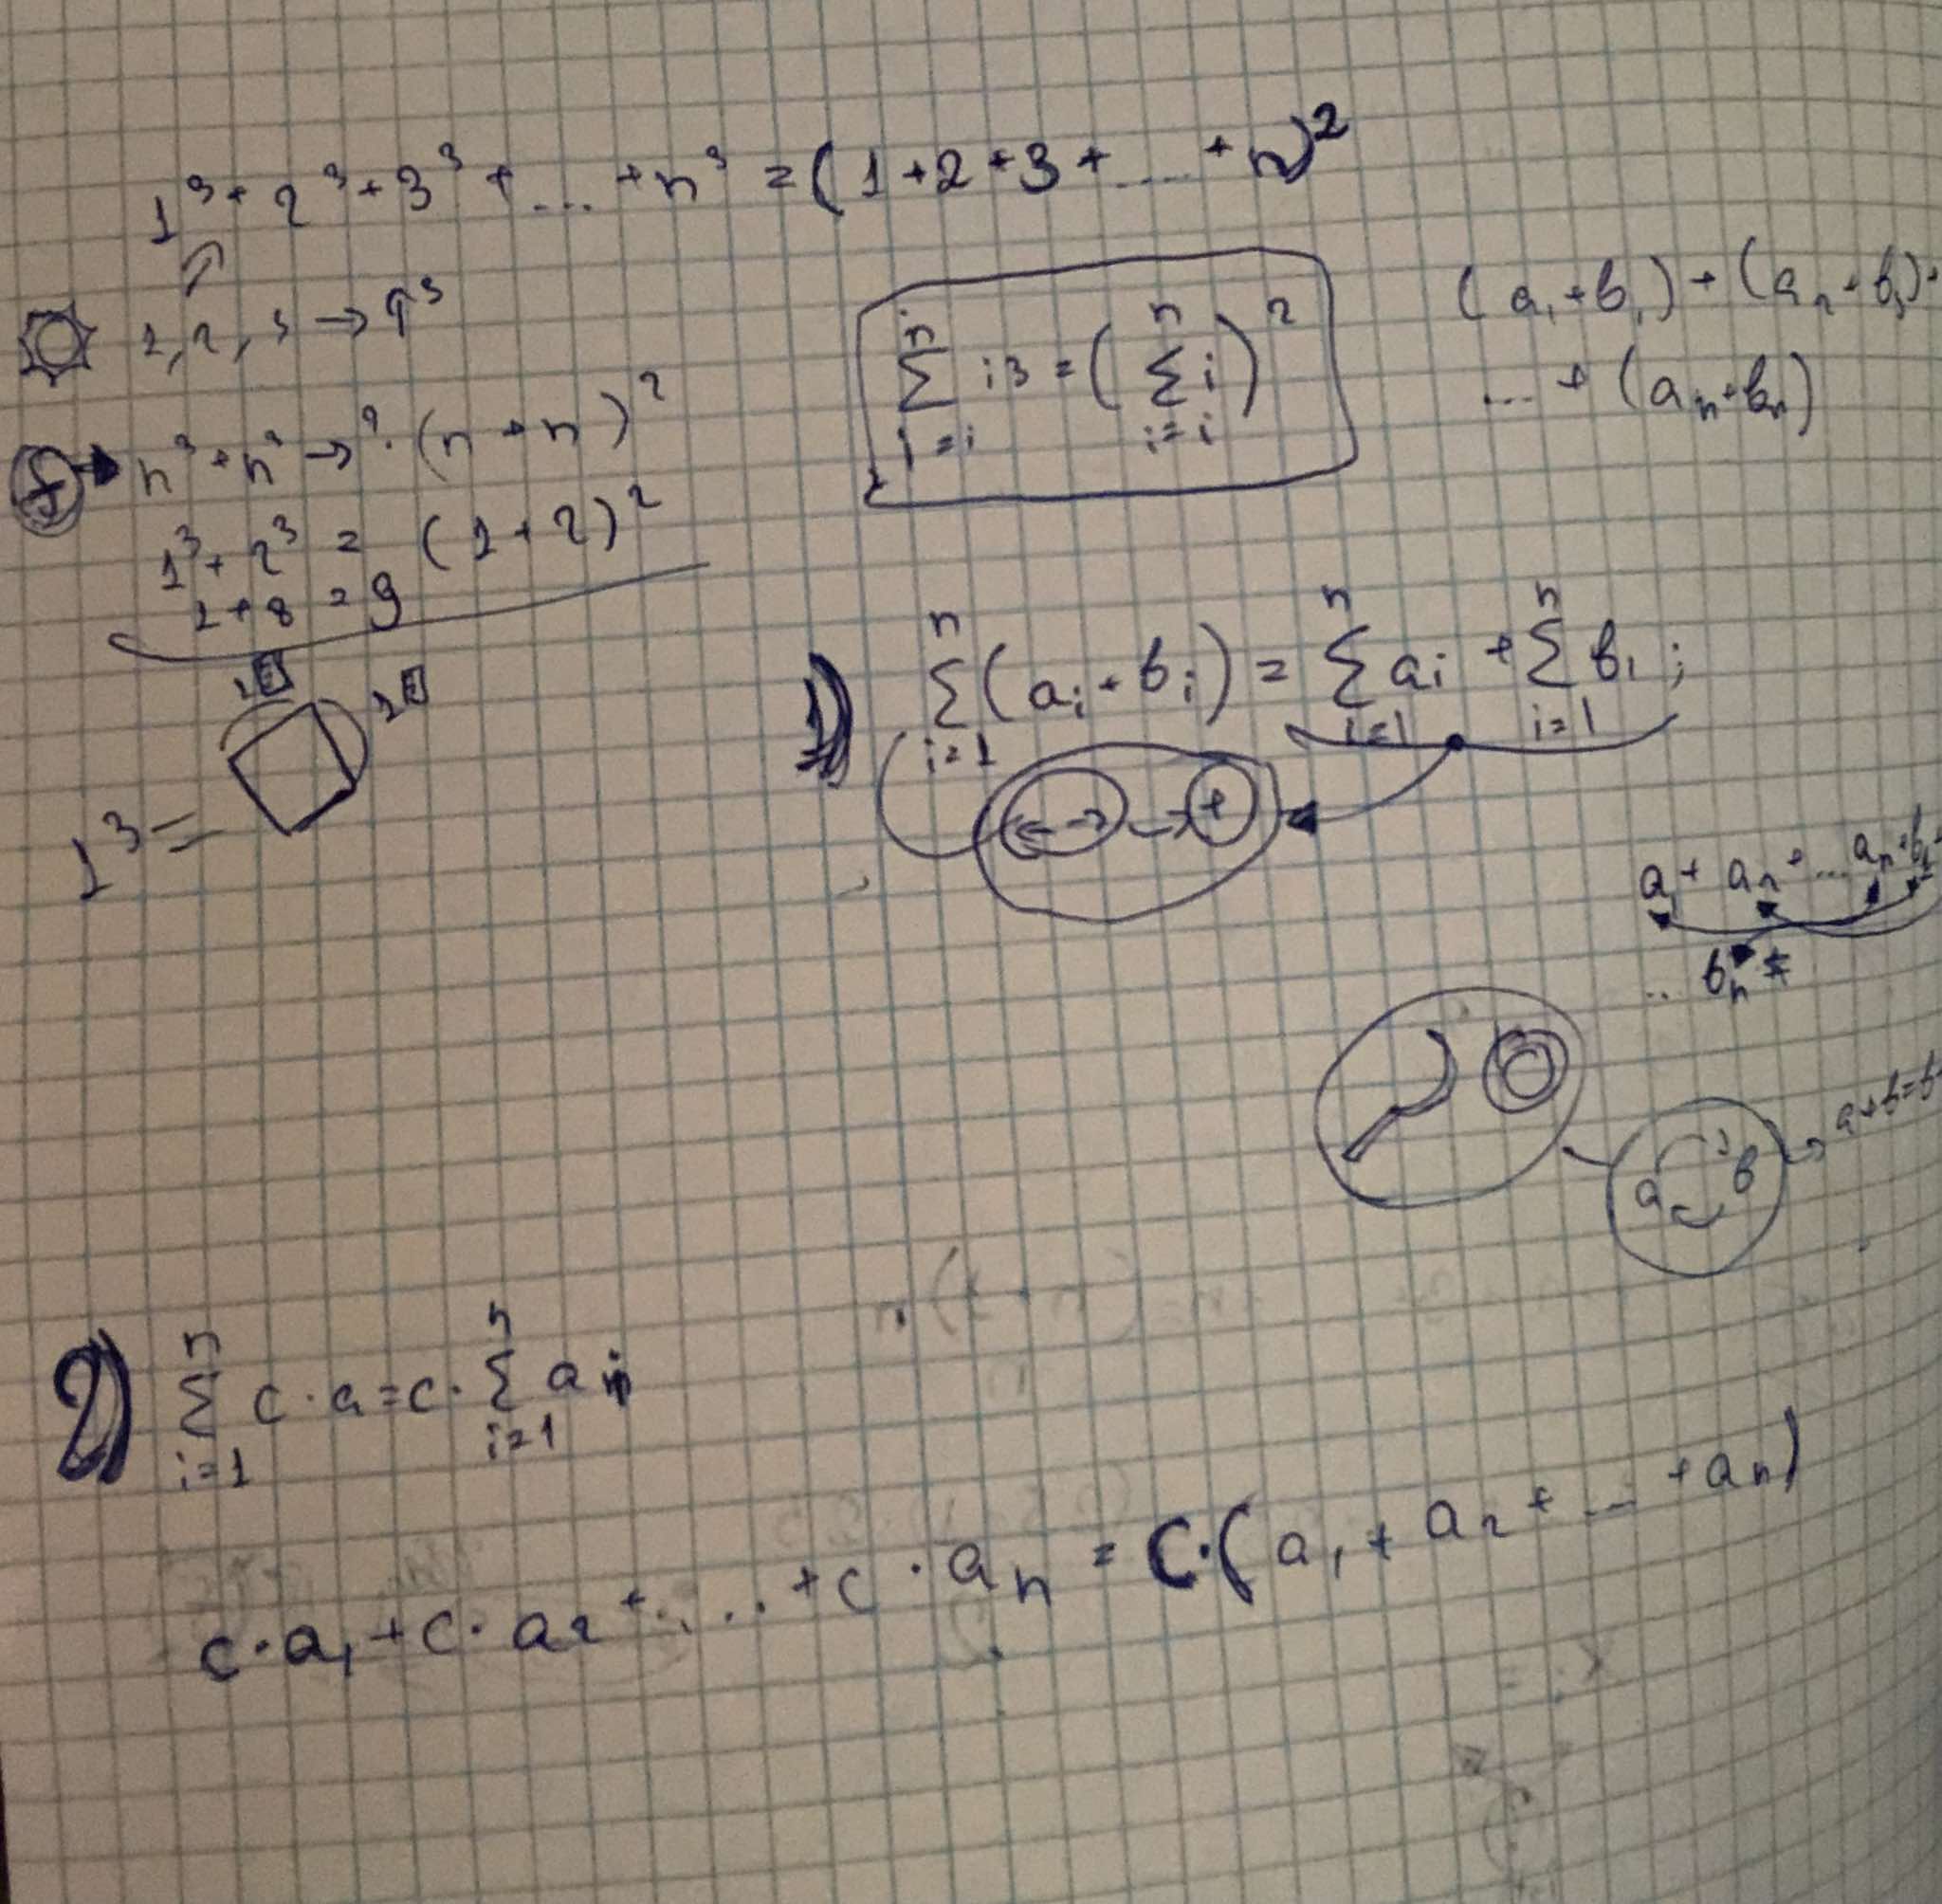 1³ + 2³ + 3³ + ... + n³ = (1 + 2 + 3 + ... + n)²
1, 2, 3 → q³
n³ + n³ → ? (n + n)²
1³ + 2³ = (1 + 2)²
1 + 8 = 9
1³ =
n ∑ i=i i3 = (n ∑ i=i i)²
(a₁ + b₁) + (a₂ + b₂) +
... + (aₙ + bₙ)
1) n ∑ i=1 (aᵢ + bᵢ) = n ∑ i=1 aᵢ + n ∑ i=1 bᵢ ;
← → → +
a₁ + a₂ + ... aₙ + b₁ +
.. bₙ =
a b → a + b = b
2) n ∑ i=1 c · a = c · n ∑ i=1 aᵢ
c · a₁ + c · a₂ + ... + c · aₙ = c · (a₁ + a₂ + ... + aₙ)